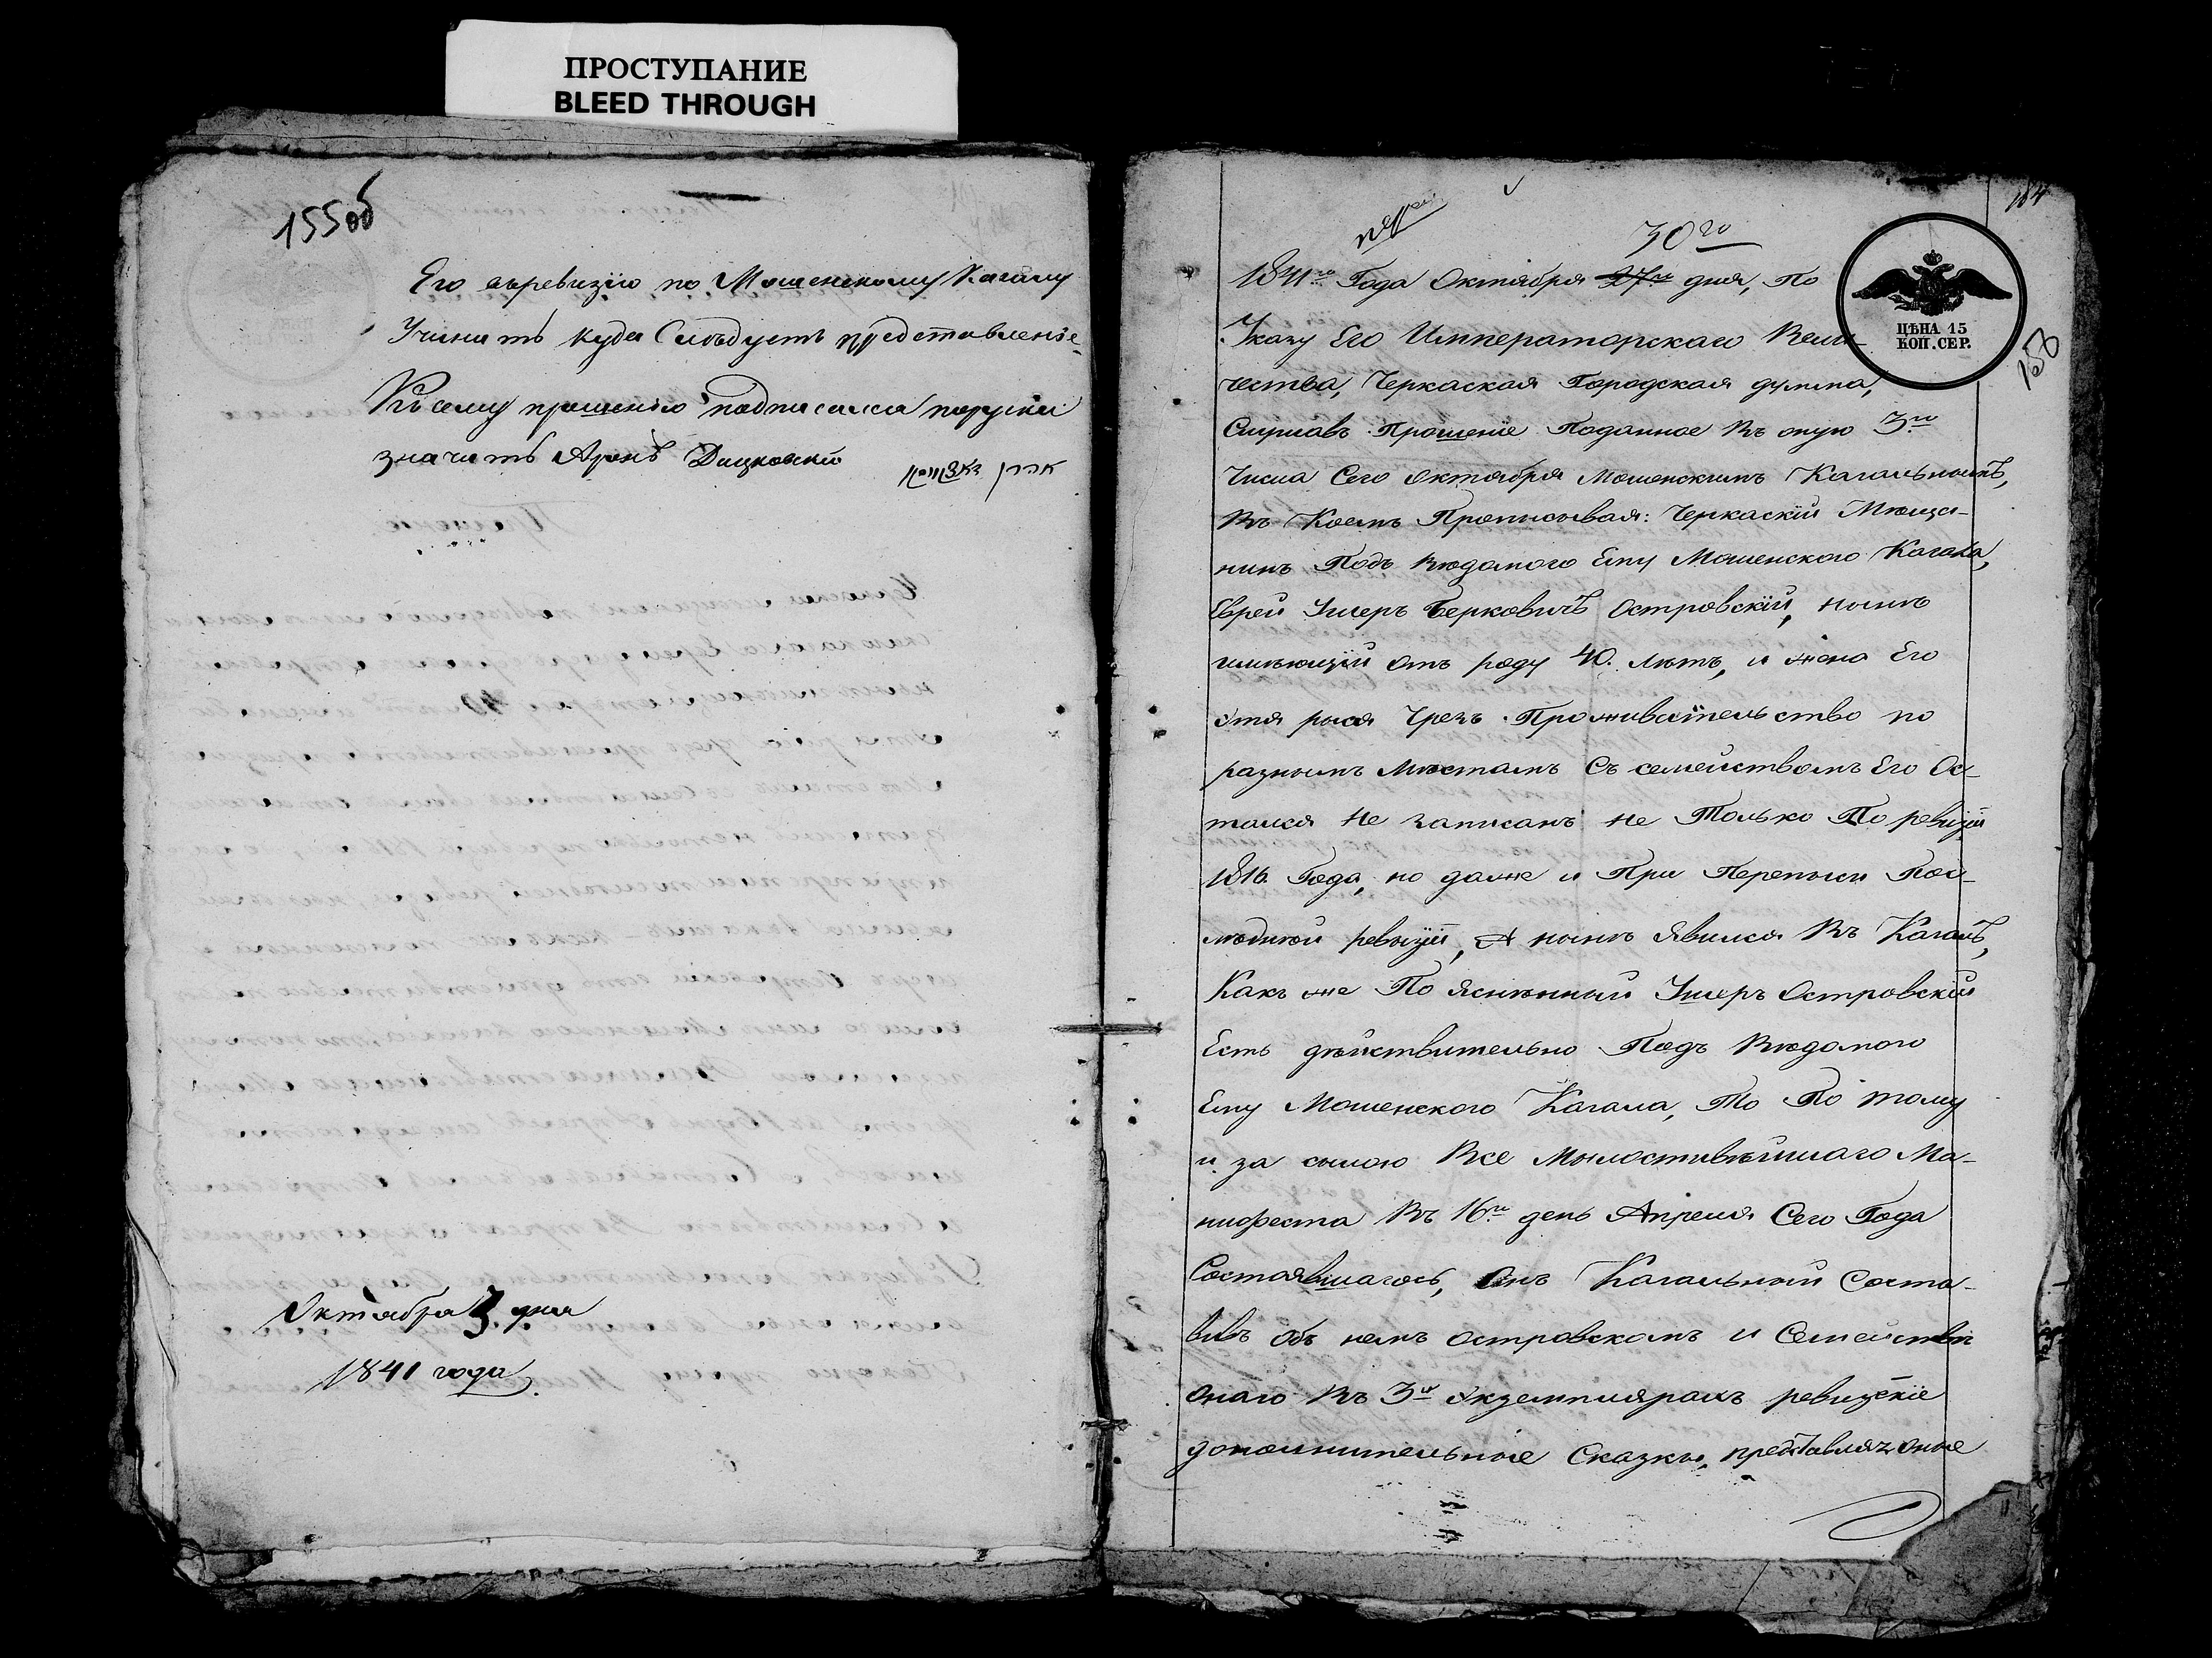 ПРОСТУПАНИЕ
BLEED THROUGH
155об
Его въревизію по Мошенскому Кагалу
Учинить куда Слѣдуетъ представленіе
Къ сему прошенію подписался поруски
значитъ Аронъ Дацковскій
Октября 3 дня
1841 года
184
158
30го
1841го Года Октября 27го дня, По
ЦѢНА 15
КОП. СЕР.
Указу Его Императорскаго Вели-
чества, Черкаская Городская дума,
Слушавъ Прошеніе Поданное Въ оную 3го
Числа Сего октября Мошенскимъ Кагальнымъ,
Въ Коемъ Прописывая: Черкаскій Мѣща-
нинъ Подъ Вѣдомого Ему Мошенского Кагала,
Еврей Ушеръ Берковичъ Островскій, нынѣ
имѣющій отъ роду 40. лѣтъ, и жена Его
Чрезъ Проживательство по
разнымъ Мѣстамъ Съ семействомъ Его Ос-
тался Не записанъ не Только По ревизіи
1816. Года, но даже и При Переписи Пос-
лѣдней ревизіи, А нынѣ явился Въ Кагалъ,
Какъ же По Ясненный Ушеръ Островскій
Есть дѣйствительно Подъ Вѣдомого
Ему Мошенского Кагала, То По тому
и за силою Все Мылостивѣйшаго Ма-
нифеста Въ 16й день Апреля Сего Года
Состоявшагось, Онъ Кагальный Соста-
вивъ Объ немъ Островскомъ и Семействѣ
Онаго Въ 3х Экземплярахъ ревизскіе
дополнительные Сказки, представляя оные